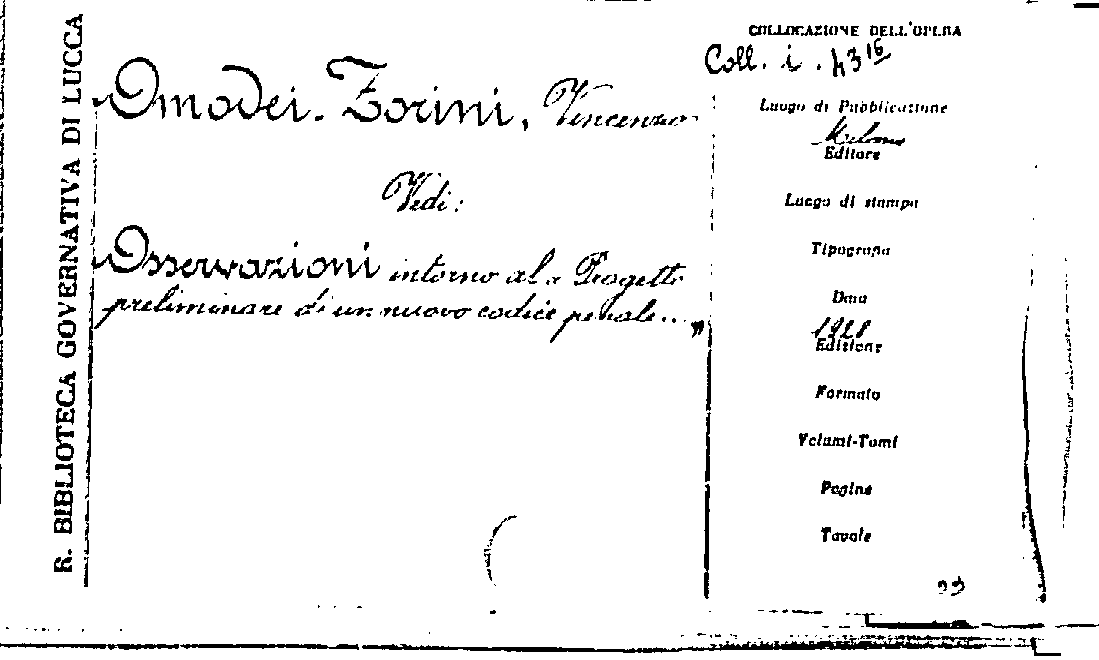 R. BIBLIOTECA GOVERNATIVA DI LUCCA
Omodei-Zorini, Vincenzo
Vedi:
Osservazioni intorno al Progetto
preliminare di un nuovo codice penale...
COLLOCAZIONE DELL'OPERA
Coll. i. 43 16
Luogo di Pubblicazione
Milano
Editore
Luogo di stampa
Tipografia
Data
1928
Edizione
Formato
Volumi-Tomi
Pagine
Tavole